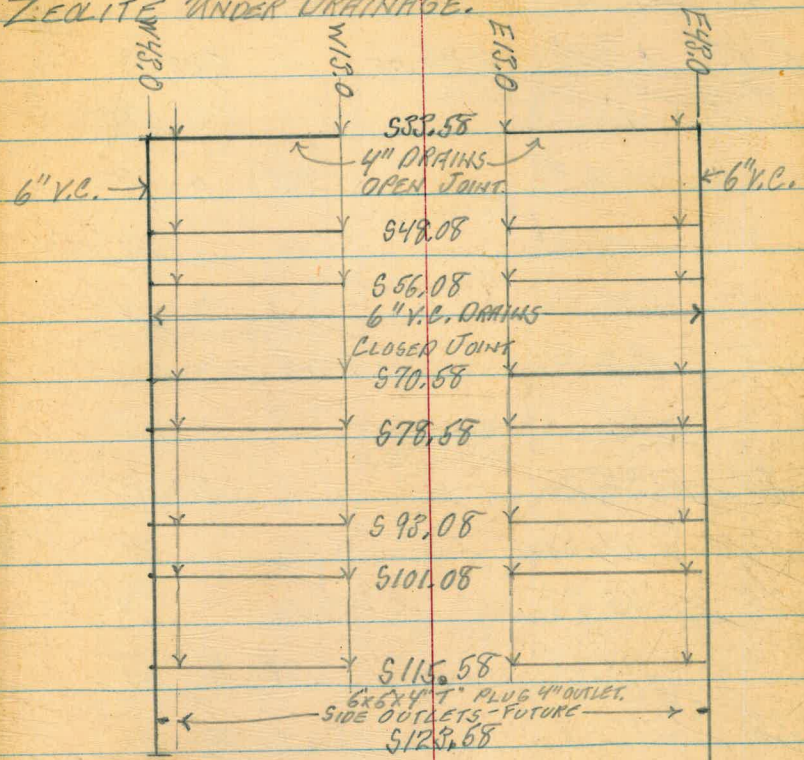 ZEOLITE UNDER DRAINAGE.
W43.0
W13.0
E13.0
E43.0
S33.58
4" DRAINS
OPEN JOINT.
6" V.C.
6" V.C.
S48.08
S56.08
6" V.C. DRAINS
CLOSED JOINT
S70.58
S78.58
S93.08
S101.08
S115.58
6x6x4 "T" PLUG 4" OUTLET.
SIDE OUTLETS-FUTURE
S123.58